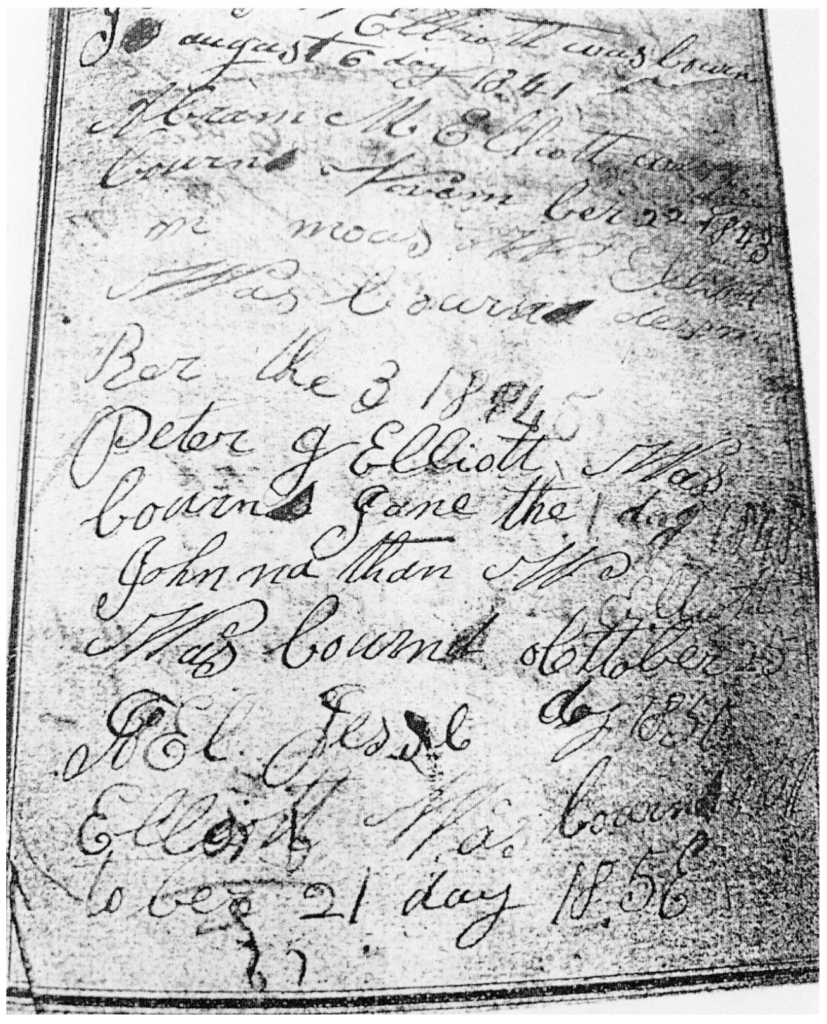 Elliott was bourn
august 6 day 1841
Abram M Elliott
bournd Novem ber 22 1843
m moas W Elliott
Was bournd desem
Ber the 3 1845
Peter g Elliott Was
bournd gane the 1 day 1848
John na than W Elliott
Was bournd octtober 25
day 1850
El Jesse
Elliott Was bournd
to ber 21 day 185